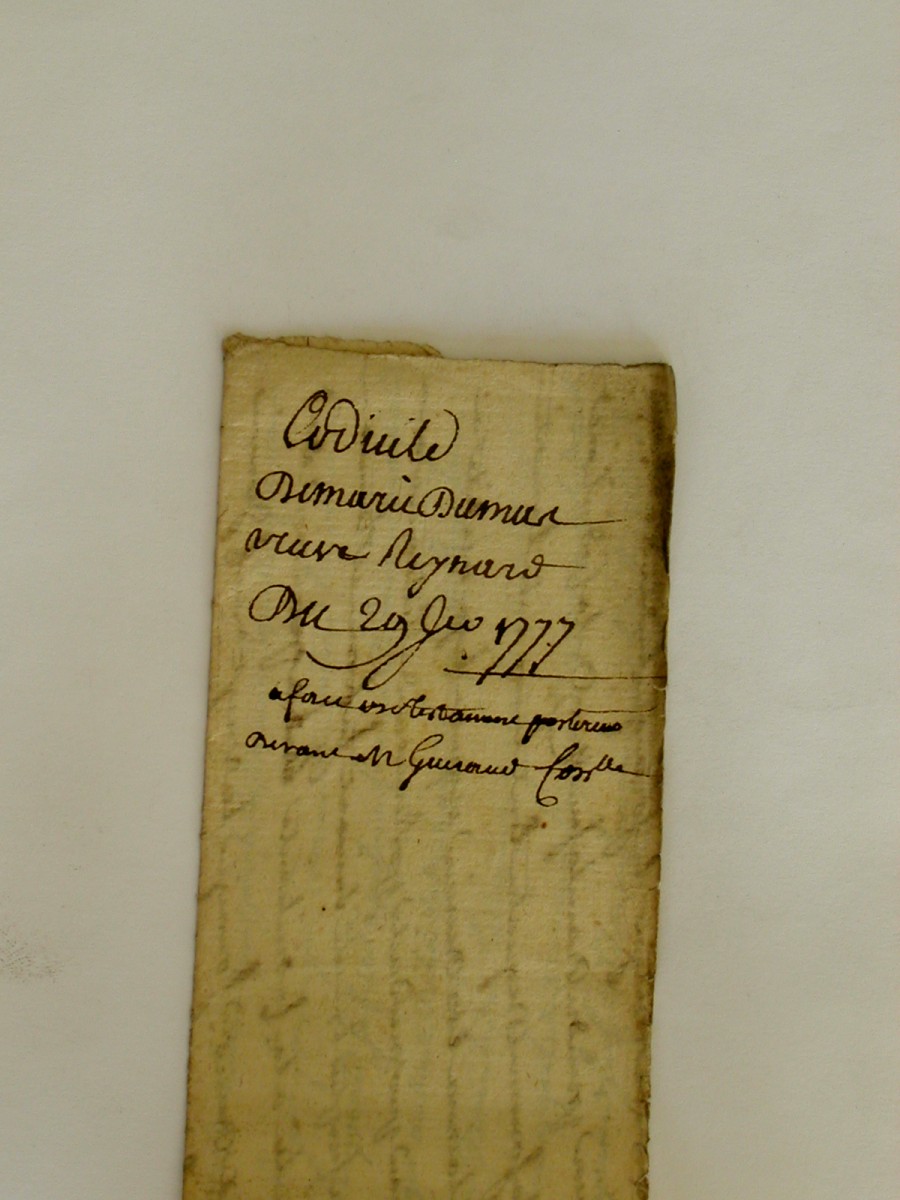 Codicile
De marie Dumas
veuve Reynard
Du 29 1777
a fait un testament posterieur
Devant Me Guiraud